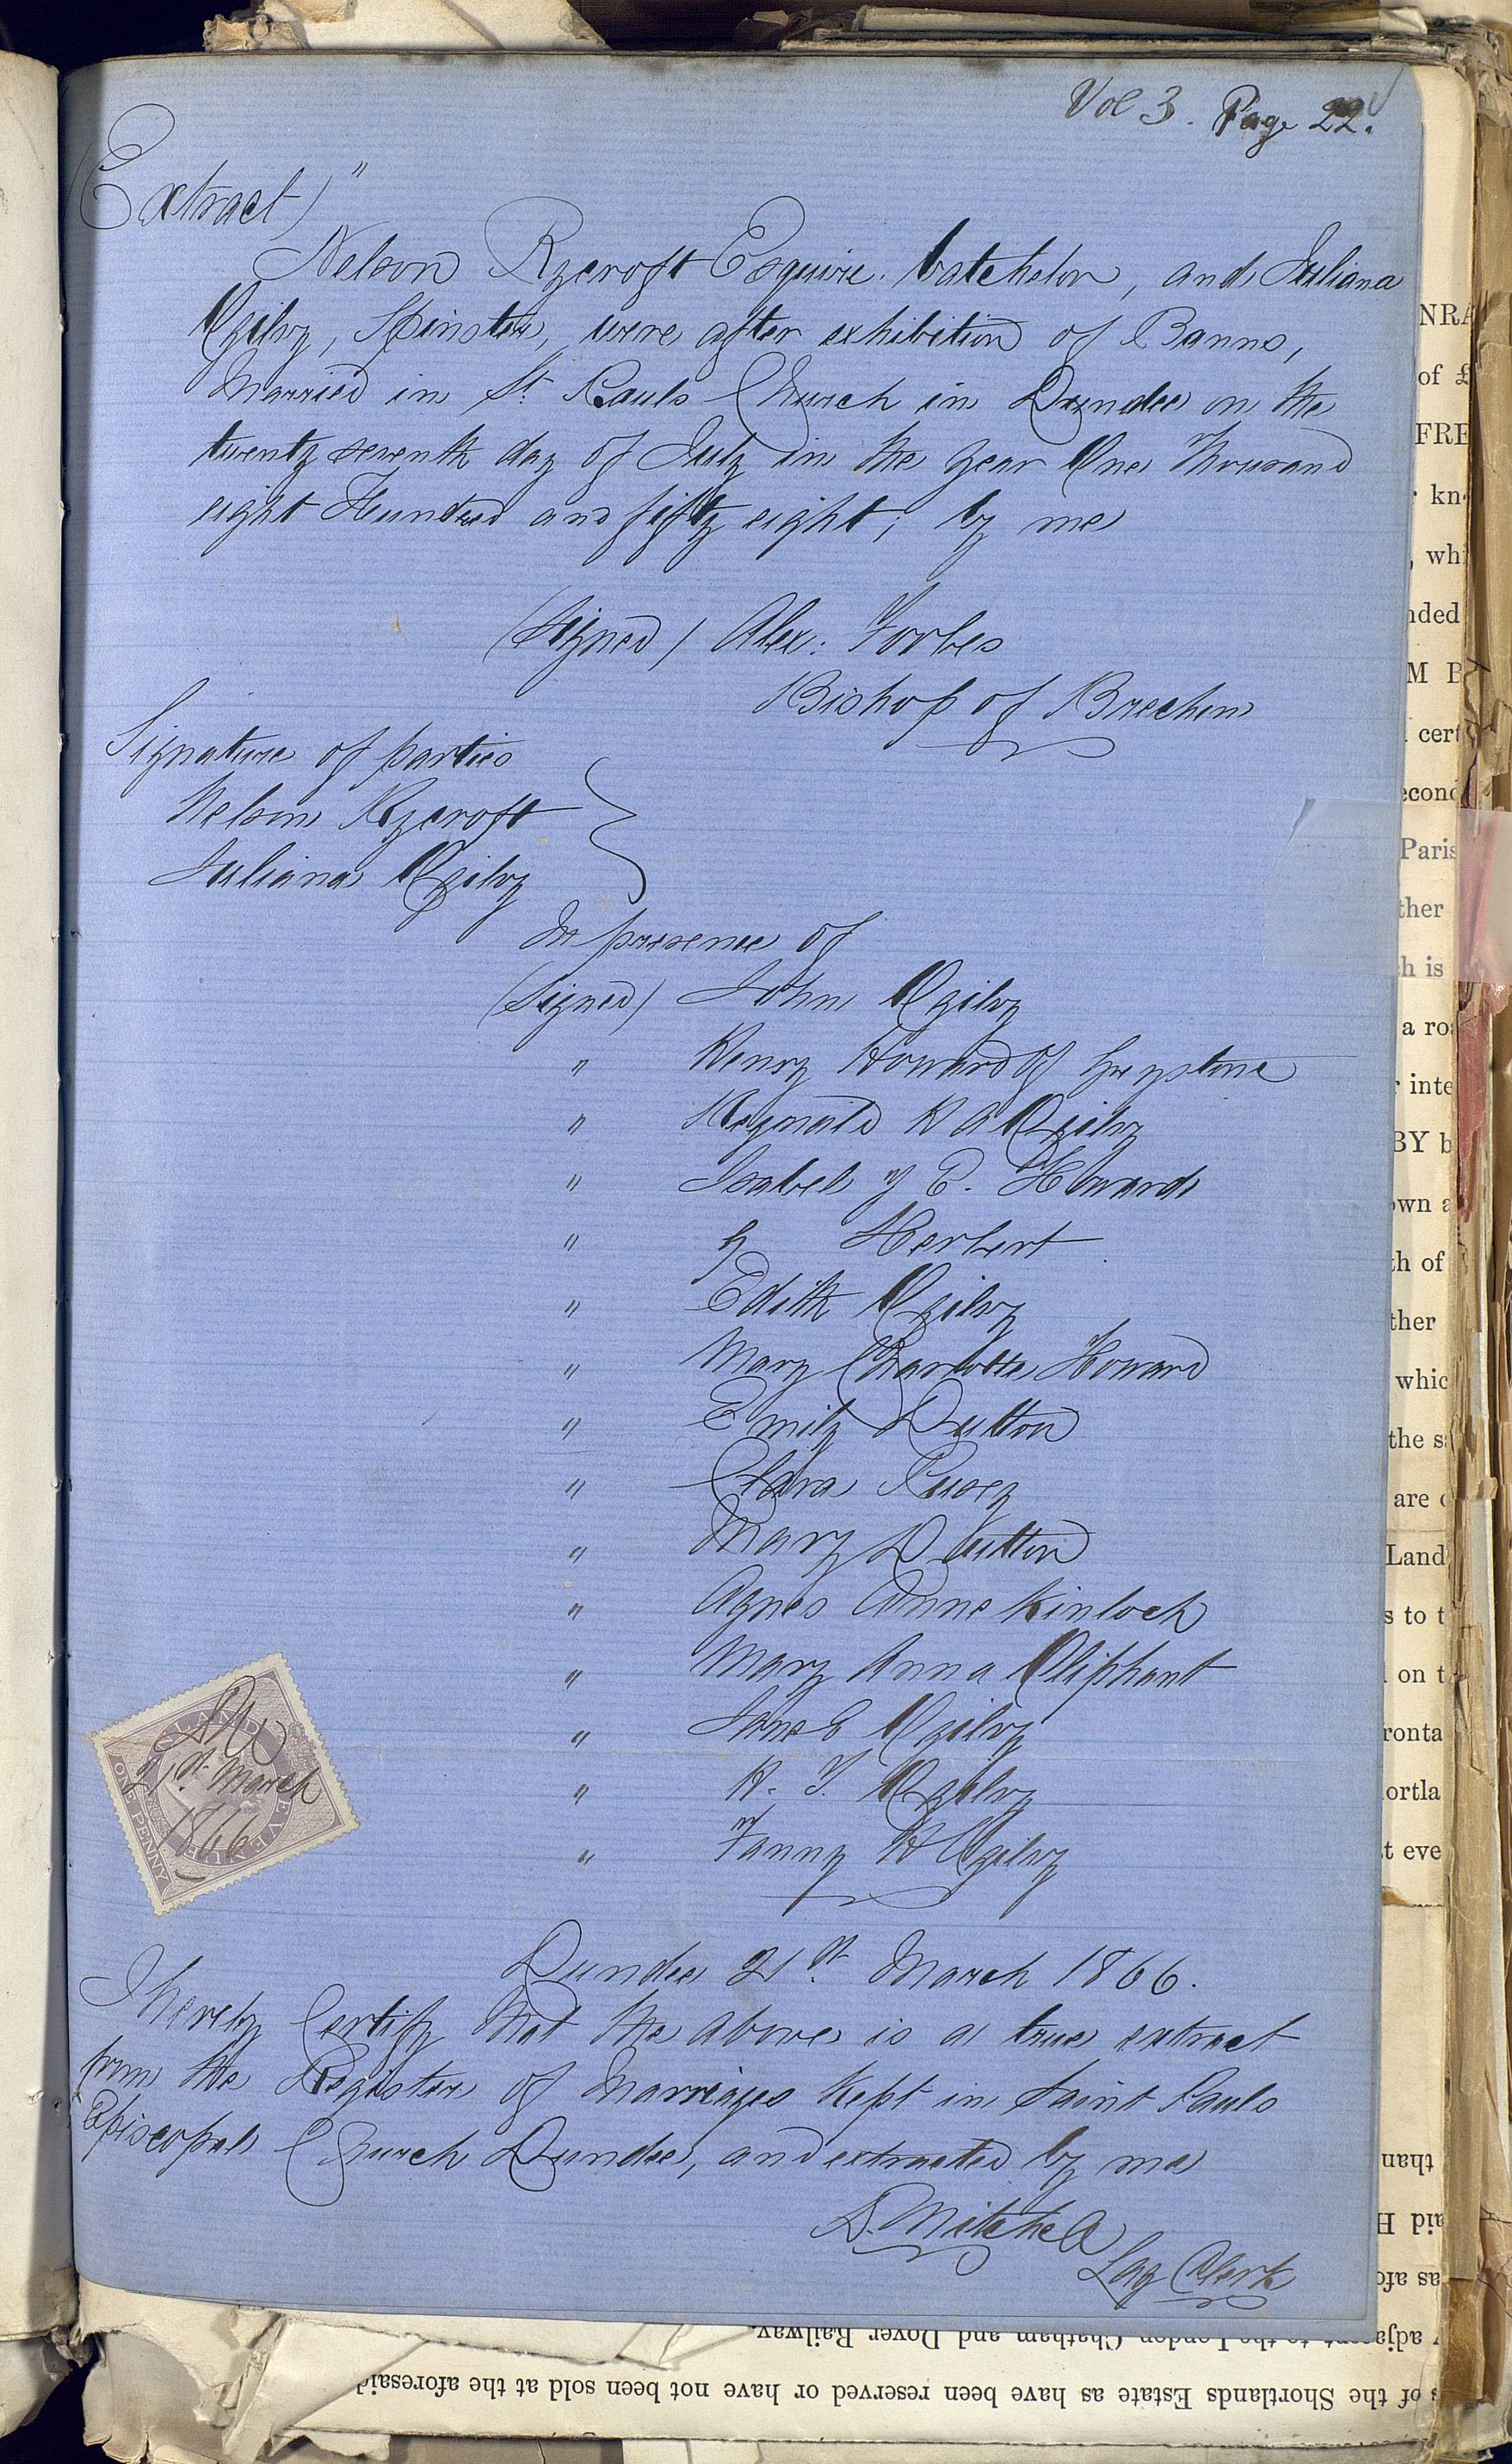 Vol 3. Page 22.
(Extract) "
Nelson Rycroft Esquire. batchelor, and Juliana
Ogilvy, Spinster, were after exhibition of Banns,
Married in St. Pauls Church in Dundee on the
twenty seventh day of July in the year One Thousand
eight Hundred and fifty eight; by me
(Signed) Alex: Forbes
Bishop of Brechin
Signature of parties
Nelson Rycroft
Juliana Ogilvy
In presence of
(Signed) John Ogilvy
" Henry Howard of Greystoke
" Reginald H A Ogilvy
" Isabel F E. Howard
" G Herbert
" Edith Ogilvy
" Mary Charlotte Howard
" Emily Dutton
" Clara Pusey
" Mary Dutton
" Agnes Anne Kinloch
" Mary Anna Oliphant
" Jane E Ogilvy
" H. T. Ogilvy
" Fanny H Ogilvy
INLAND REVENUE
ONE PENNY
DM
21st March
1866
Dundee 21st. March 1866.
I hereby Certify that the above is a true extract
from the Register of Marriages kept in Saint Pauls
Episcopal Church Dundee, and extracted by me
D. Mitchell
Lay Clerk
of £
FRE
kn
, whi
nded
M B
cert
econd
Paris
ther
h is
a roa
r inte
BY b
own a
th of
ther
whic
the sa
are o
Land
s to t
on t
fronta
ortla
t eve
than
aid H
as afo
adjacent to the London Chatham and Dover Railway.
s of the Shortlands Estate as have been reserved or have not been sold at the aforesaid